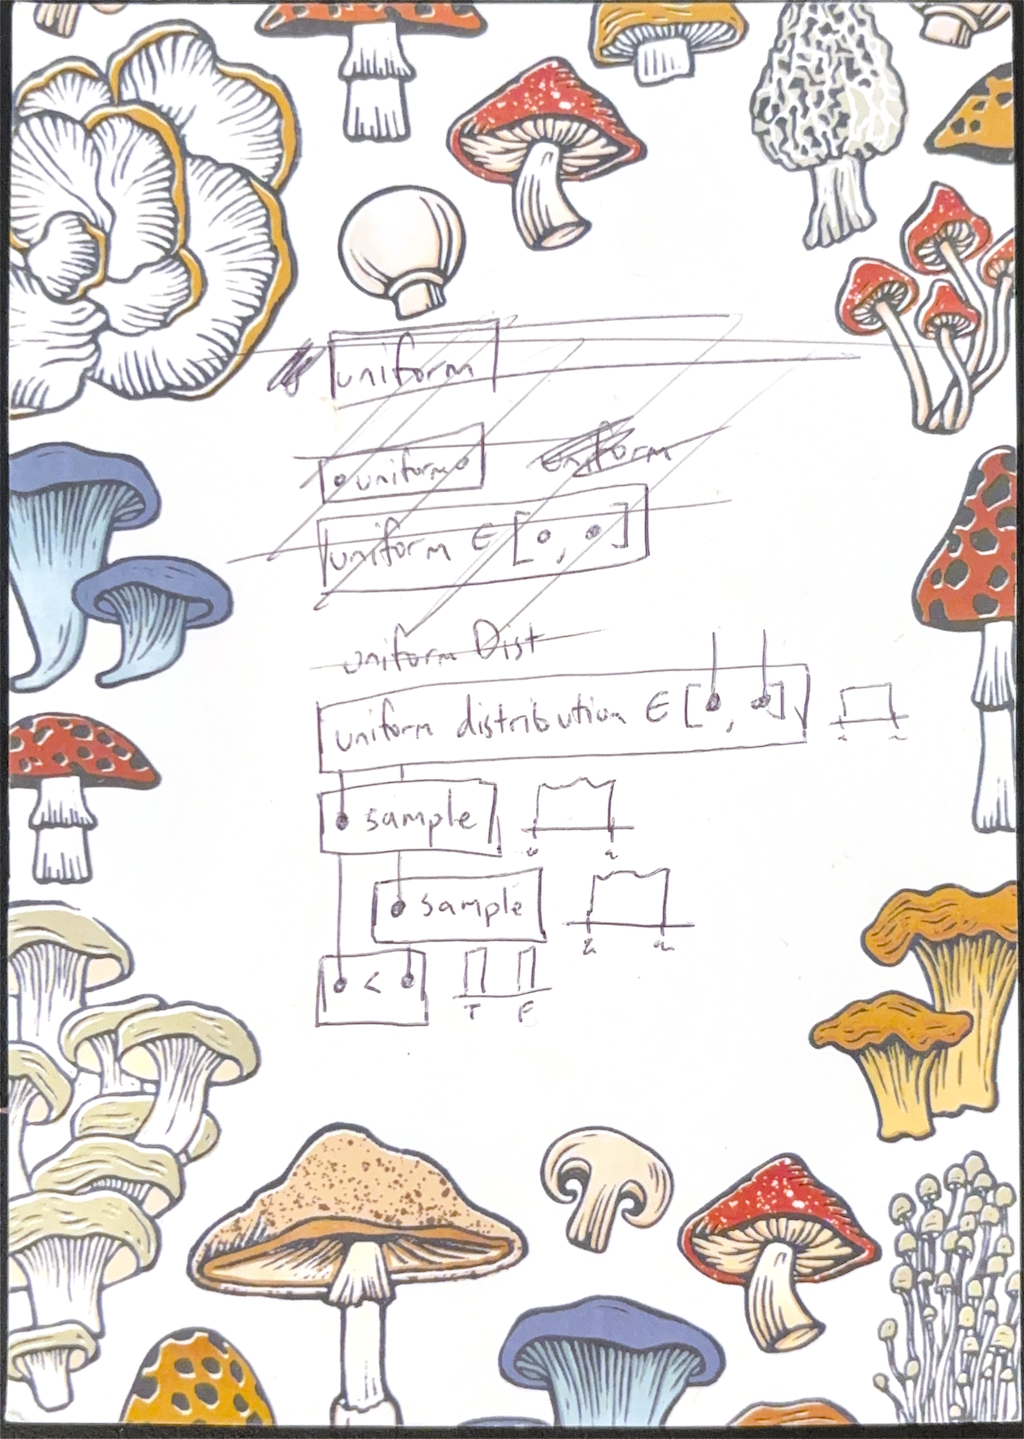 uniform
uniform
uniform
uniform ∈ [ , ]
uniform Dist
uniform distribution ∈ [ , ]
sample
sample
<
T F